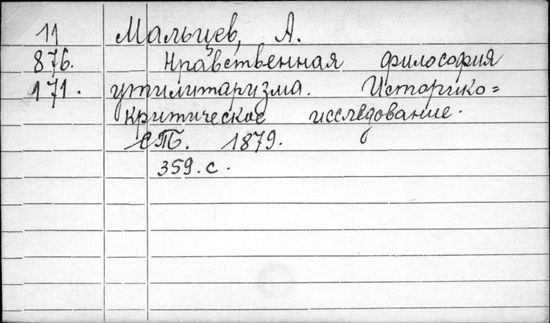 11 Мальцев, А.
876. Нравственная философия
171. утилитаризма. Историко=
критическое исследование.
СПб. 1879.
359.с.